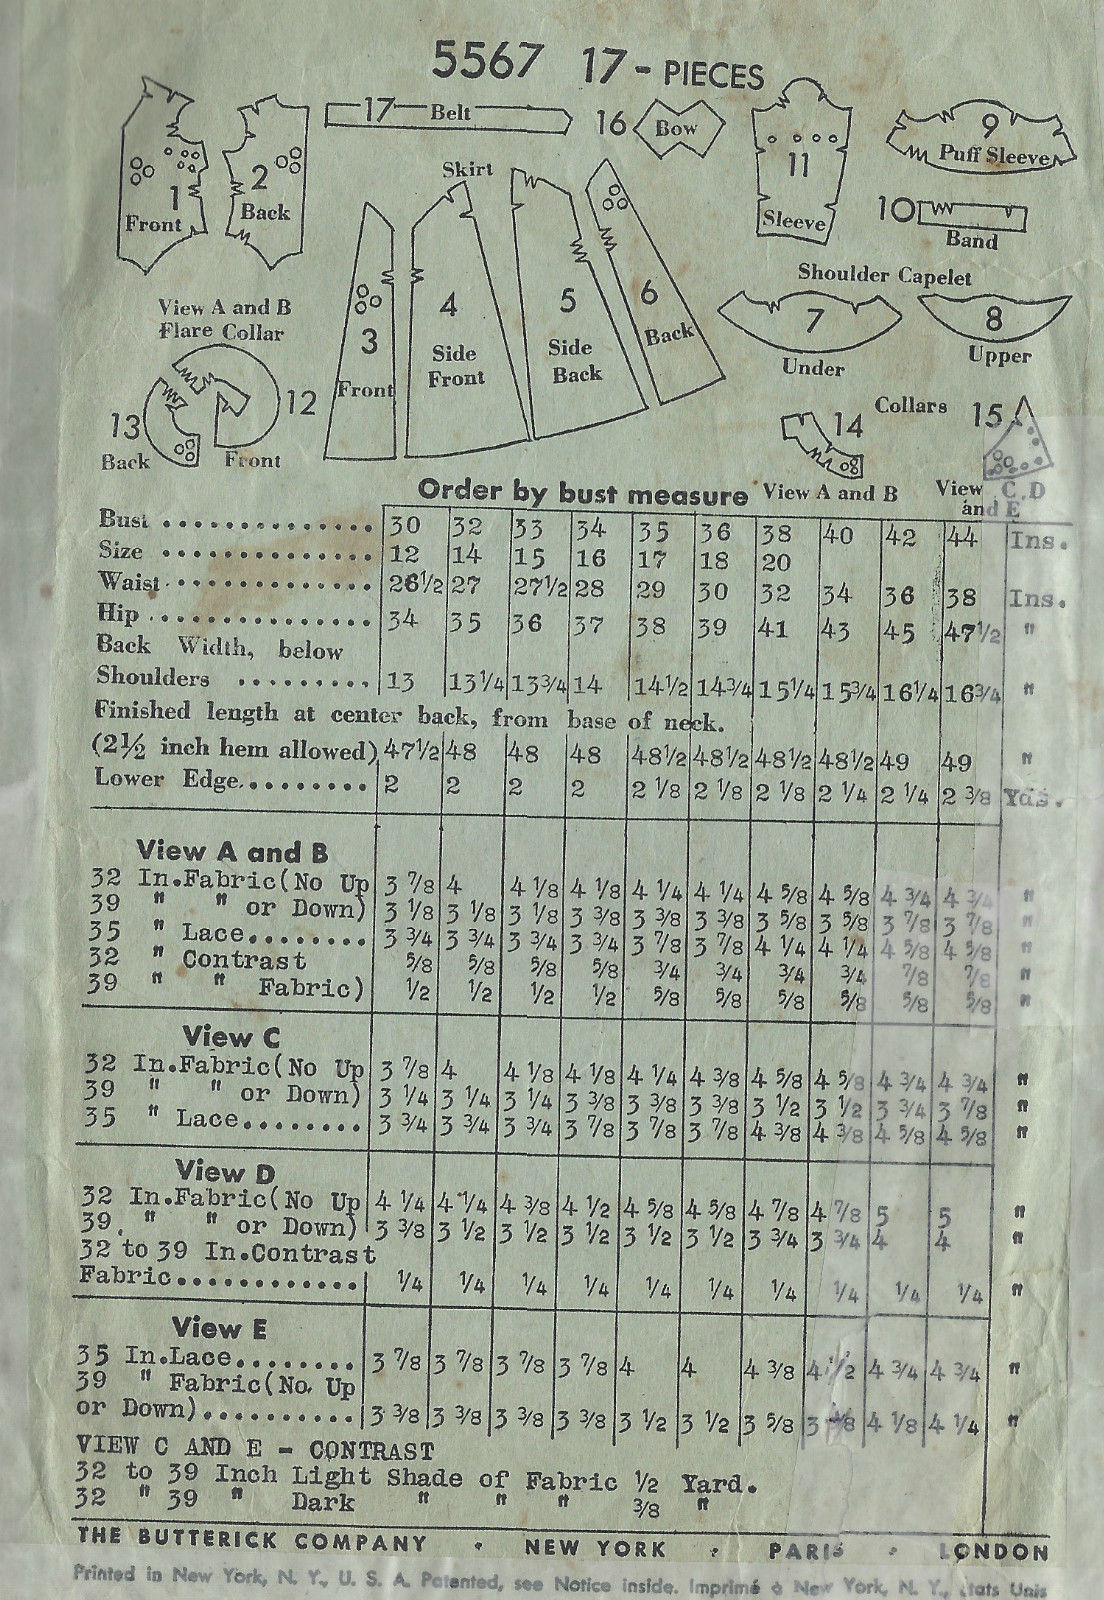 5567 17 - PIECES
17 Belt
16 Bow
1 Front
2 Back
11 Sleeve
9 Puff Sleeve
10 Band
Skirt
3 Front
4 Side Front
5 Side Back
6 Back
Shoulder Capelet
7 Under
8 Upper
View A and B
Flare Collar
13 Back
12 Front
Collars
14
View A and B
15
View C,D
and E
Order by bust measure
Bust .............. 30 32 33 34 35 36 38 40 42 44 Ins.
Size .............. 12 14 15 16 17 18 20
Waist .............. 26½ 27 27½ 28 29 30 32 34 36 38 Ins.
Hip ............... 34 35 36 37 38 39 41 43 45 47½ "
Back Width, below
Shoulders ......... 13 13¼ 13¾ 14 14½ 14¾ 15¼ 15¾ 16¼ 16¾ "
Finished length at center back, from base of neck.
(2½ inch hem allowed) 47½ 48 48 48 48½ 48½ 48½ 48½ 49 49 "
Lower Edge......... 2 2 2 2 2 1/8 2 1/8 2 1/8 2 1/4 2 1/4 2 3/8 Yds.
View A and B
32 In.Fabric(No Up 3 7/8 4 4 1/8 4 1/8 4 1/4 4 1/4 4 5/8 4 5/8 4 3/4 4 3/4 "
39 " " or Down) 3 1/8 3 1/8 3 1/8 3 3/8 3 3/8 3 3/8 3 5/8 3 5/8 3 7/8 3 7/8 "
35 " Lace........ 3 3/4 3 3/4 3 3/4 3 3/4 3 7/8 3 7/8 4 1/4 4 1/4 4 5/8 4 5/8 "
32 " Contrast 5/8 5/8 5/8 5/8 3/4 3/4 3/4 3/4 7/8 7/8 "
39 " " Fabric) 1/2 1/2 1/2 1/2 5/8 5/8 5/8 5/8 5/8 5/8 "
View C
32 In.Fabric(No Up 3 7/8 4 4 1/8 4 1/8 4 1/4 4 3/8 4 5/8 4 5/8 4 3/4 4 3/4 "
39 " " or Down) 3 1/4 3 1/4 3 1/4 3 3/8 3 3/8 3 3/8 3 1/2 3 1/2 3 3/4 3 7/8 "
35 " Lace........ 3 3/4 3 3/4 3 3/4 3 7/8 3 7/8 3 7/8 4 3/8 4 3/8 4 5/8 4 5/8 "
View D
32 In.Fabric(No Up 4 1/4 4 1/4 4 3/8 4 1/2 4 5/8 4 5/8 4 7/8 4 7/8 5 5 "
39. " " or Down) 3 3/8 3 1/2 3 1/2 3 1/2 3 1/2 3 1/2 3 3/4 3 3/4 4 4 "
32 to 39 In.Contrast
Fabric............. 1/4 1/4 1/4 1/4 1/4 1/4 1/4 1/4 1/4 1/4 "
View E
35 In.Lace........ 3 7/8 3 7/8 3 7/8 3 7/8 4 4 4 3/8 4 1/2 4 3/4 4 3/4 "
39 " Fabric(No. Up
or Down).......... 3 3/8 3 3/8 3 3/8 3 3/8 3 1/2 3 1/2 3 5/8 3 4 1/8 4 1/4 "
VIEW C AND E - CONTRAST
32 to 39 Inch Light Shade of Fabric 1/2 Yard.
32 " 39 " Dark " " " 3/8 "
THE BUTTERICK COMPANY · NEW YORK · PARIS · LONDON
Printed in New York, N. Y., U. S. A. Patented, see Notice inside. Imprimé à New York, N. Y., Etats Unis